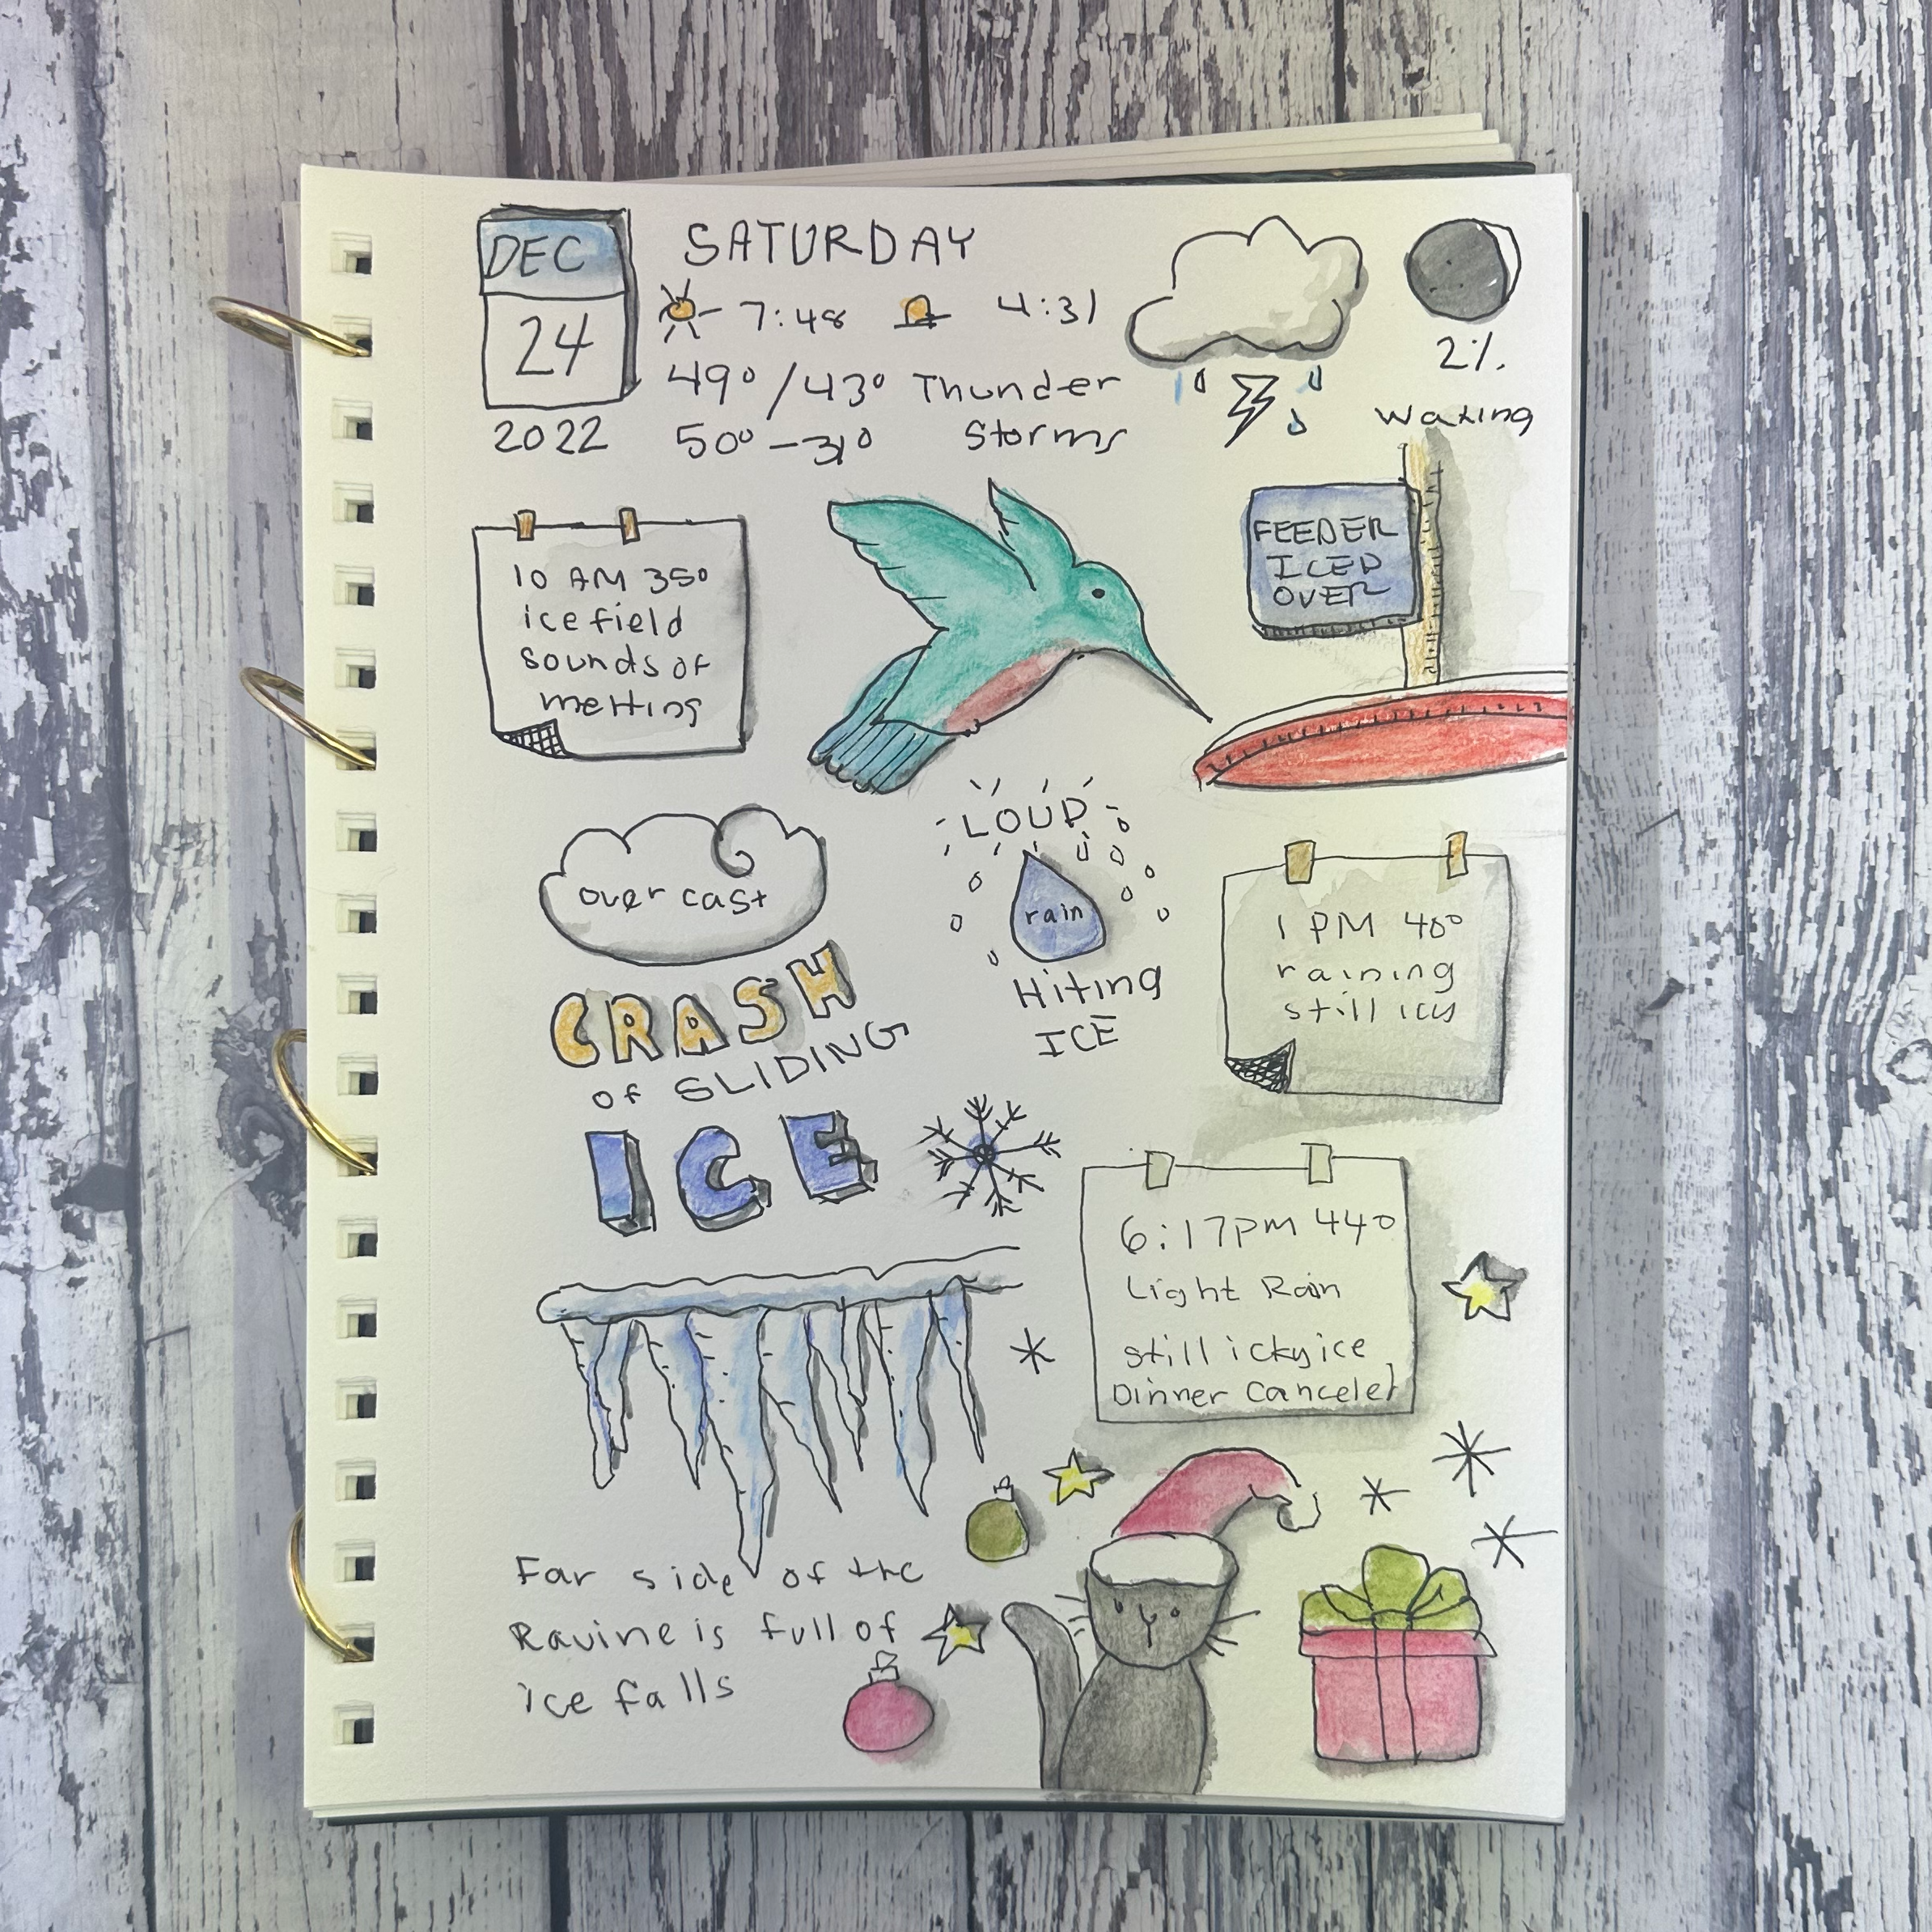 DEC
24
2022
SATURDAY
7:48 4:31
49°/43° Thunder
50°-31° Storms
2%
Waxing
10 AM 35°
ice field
sounds of
melting
FEEDER
ICED
OVER
over cast
LOUD
rain
Hiting
ICE
1 PM 40°
raining
still icy
CRASH
of SLIDING
ICE
6:17pm 44°
Light Rain
still icky ice
Dinner Canceled
Far side of the
Ravine is full of
ice falls